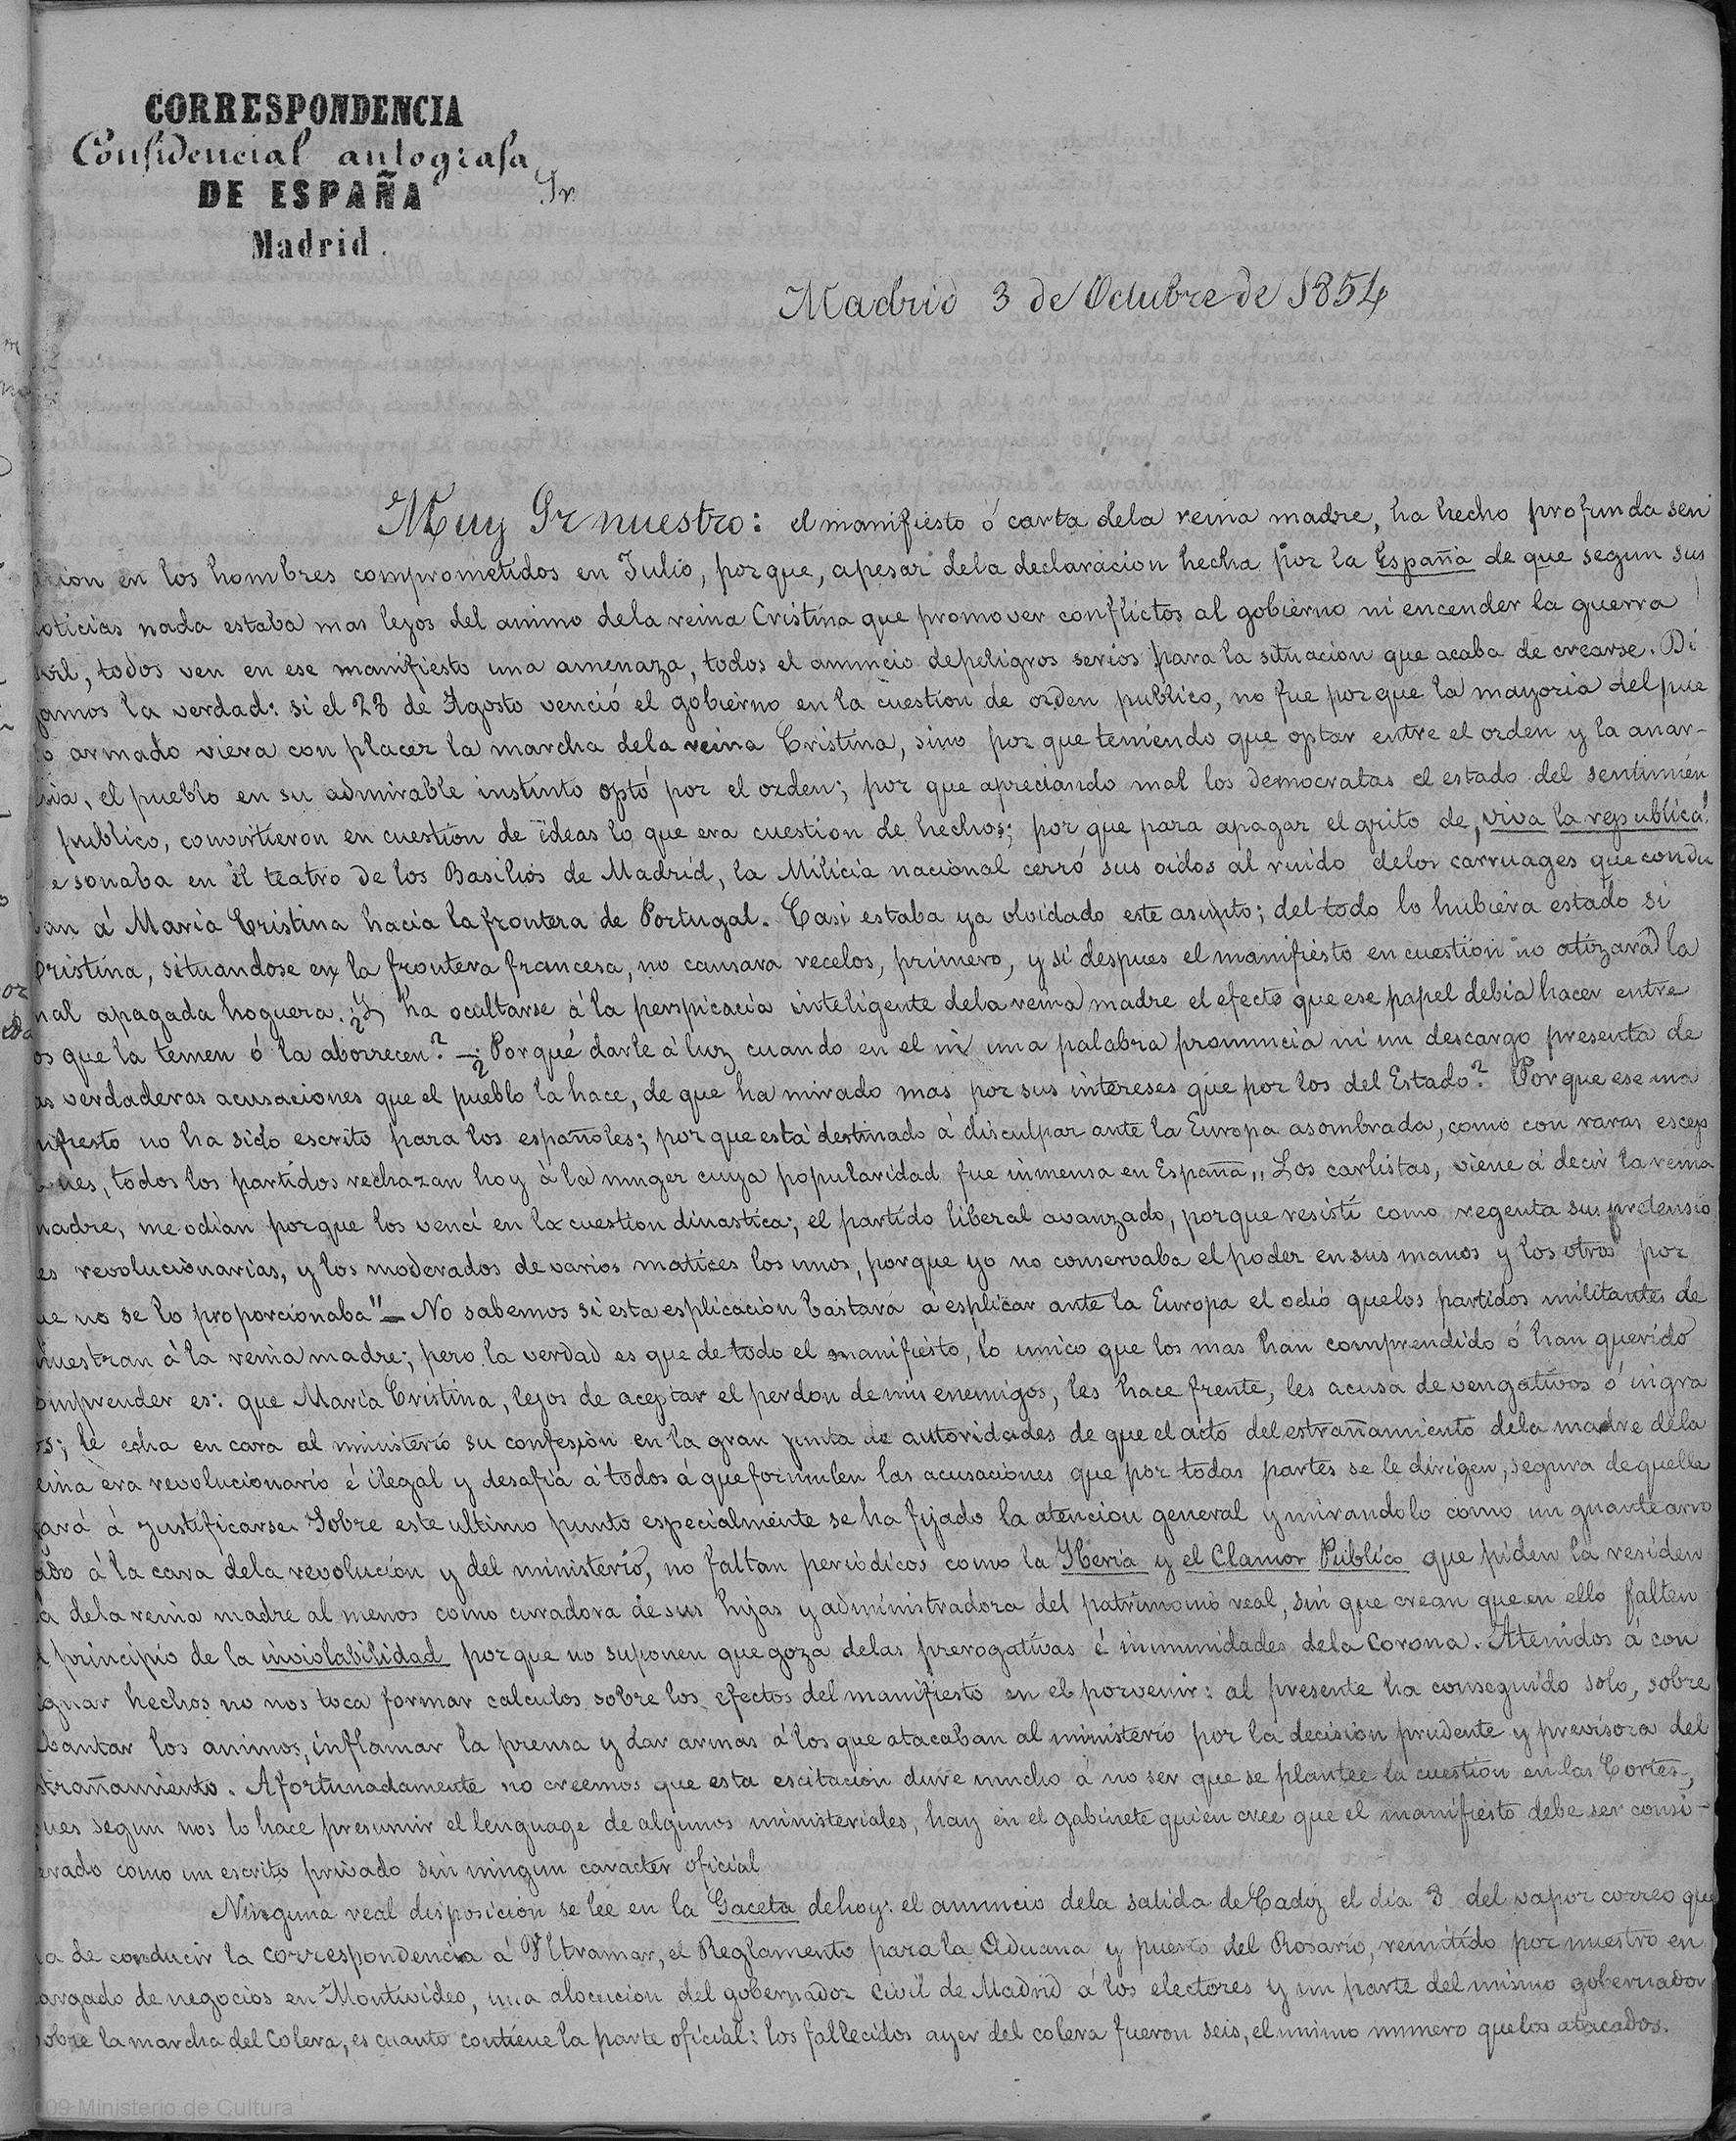 CORRESPONDENCIA
Confidencial autografa
DE ESPAÑA
Sr.
Madrid.
Madrid 3 de Octubre de 1854
Muy Sr nuestro: el manifiesto ó carta dela reina madre, ha hecho profunda sen
cion en los hombres comprometidos en Julio, porque, apesar dela declaracion hecha por la España de que segun sus
oticias nada estaba mas lejos del animo dela reina Cristina que promover conflictos al gobierno ni encender la guerra
ivil, todos ven en ese manifiesto una amenaza, todos el anuncio depeligros serios para la situacion que acaba de crearse. Di
gamos la verdad: si el 28 de Agosto venció el gobierno en la cuestion de orden publico, no fue porque la mayoria del pue
lo armado viera con placer la marcha dela reina Cristina, sino por que teniendo que optar entre el orden y la anar-
uia, el pueblo en su admirable instinto optó por el orden; por que apreciando mal los democratas el estado del sentimien
publico, convirtieron en cuestion de ideas lo que era cuestion de hechos; por que para apagar el grito de, viva la republica!
e sonaba en el teatro de los Basilios de Madrid, la Milicia nacional cerró sus oidos al ruido delos carruages que condu
ian á Maria Cristina hacia la frontera de Portugal. Casi estaba ya olvidado este asunto; del todo lo hubiera estado si
Cristina, situandose en la frontera francesa, no causara recelos, primero, y si despues el manifiesto en cuestion no atizara la
mal apagada hoguera. ¿Y ha ocultarse á la perspicacia inteligente dela reina madre el efecto que ese papel debia hacer entre
os que la temen ó la aborrecen? — ¿Porqué darle á luz cuando en el ni una palabra pronuncia ni un descargo presenta de
as verdaderas acusaciones que el pueblo la hace, de que ha mirado mas por sus intereses que por los del Estado? Porque ese ma
nifiesto no ha sido escrito para los españoles; por que está destinado á disculpar ante la Europa asombrada, como con raras escep
iones, todos los partidos rechazan hoy á la muger cuya popularidad fue inmensa en España „ Los carlistas, viene á decir la reina
madre, me odian porque los vencí en la cuestion dinastica; el partido liberal avanzado, porque resistí como regenta sus pretensio
es revolucionarias, y los moderados de varios matices los unos, porque yo no conservaba el poder en sus manos y los otros por
ue no se lo proporcionaba" — No sabemos si esta esplicacion bastará á esplicar ante la Europa el odio quelos partidos militantes de
muestran á la reina madre; pero la verdad es que de todo el manifiesto, lo unico que los mas han comprendido ó han querido
omprender es: que Maria Cristina, lejos de aceptar el perdon de mis enemigos, les hace frente, les acusa de vengativos ó ingra
os; le echa en cara al ministerio su confesion en la gran junta de autoridades de que el acto del estrañamiento dela madre dela
eina era revolucionario é ilegal y desafia á todos á que formulen las acusaciones que por todas partes se le dirigen, segura de quella
gará á justificarse. Sobre este ultimo punto especialmente se ha fijado la atencion general y mirandolo como un guante arro
ado á la cara dela revolucion y del ministerio, no faltan periodicos como la Iberia y el Clamor Publico que piden la residen
ia dela reina madre al menos como curadora de sus hijas y administradora del patrimonio real, sin que crean que en ello falten
l principio de la inviolabilidad porque no suponen que goza delas prerogativas é inmunidades dela Corona. Atenidos á con
ignar hechos no nos toca formar calculos sobre los efectos del manifiesto en el porvenir: al presente ha conseguido solo, sobre
levantar los animos, inflamar la prensa y dar armas á los que atacaban al ministerio por la decision prudente y previsora del
strañamiento. Afortunadamente no creemos que esta escitacion dure mucho á no ser que se plantee la cuestion en las Cortes,
pues segun nos lo hace presumir el lenguage de algunos ministeriales, hay en el gabinete quien cree que el manifiesto debe ser consi-
erado como un escrito privado sin ningun caracter oficial
Ninguna real disposicion se lee en la Gaceta dehoy: el anuncio dela salida de Cadiz el dia 8 del vapor correo que
ha de conducir la correspondencia á Ultramar, el Reglamento para la Aduana y puerto del Rosario, remitido por nuestro en
argado de negocios en Montivideo, una alocucion del gobernador civil de Madrid á los electores y un parte del mismo gobernador
sobre la marcha del Colera, es cuanto contiene la parte oficial: los fallecidos ayer del colera fueron seis, el mismo numero quelos atacados.
2009 Ministerio de Cultura